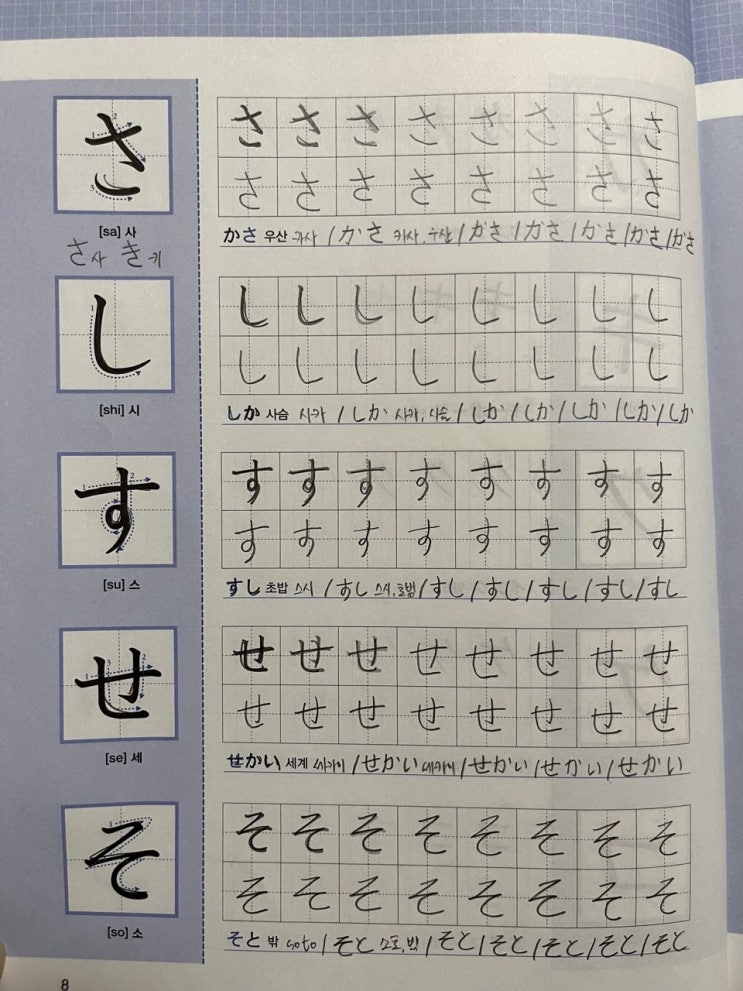 さ
さ さ さ さ さ さ さ さ
さ さ さ さ さ さ さ さ
[sa] 사
さ사 き키
かさ 우산 카사 / かさ 카사, 우산 / かさ / かさ / かさ / かさ / かさ
し
し し し し し し し し
し し し し し し し し
[shi] 시
しか 사슴 시카 / しか 시카, 사슴 / しか / しか / しか / しか / しか
す
す す す す す す す す
す す す す す す す す
[su] 스
すし 초밥 스시 / すし 스시, 초밥 / すし / すし / すし / すし / すし
せ
せ せ せ せ せ せ せ せ
せ せ せ せ せ せ せ せ
[se] 세
せかい 세계 세카이 / せかい 세카이 / せかい / せかい / せかい
そ
そ そ そ そ そ そ そ そ
そ そ そ そ そ そ そ そ
[so] 소
そと 밖 soto / そと 소토, 밖 / そと / そと / そと / そと / そと
8